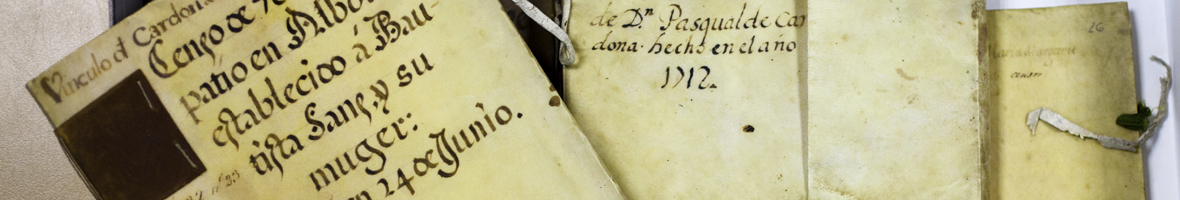 Vinculo d Cardona
Censo de
patio en Albo
establecido á Bau-
tista Sanz, y su
muger:
en 24 de Junio.
de Dn Pasqual de Car
dona hecho en el año
1712.
26
censos